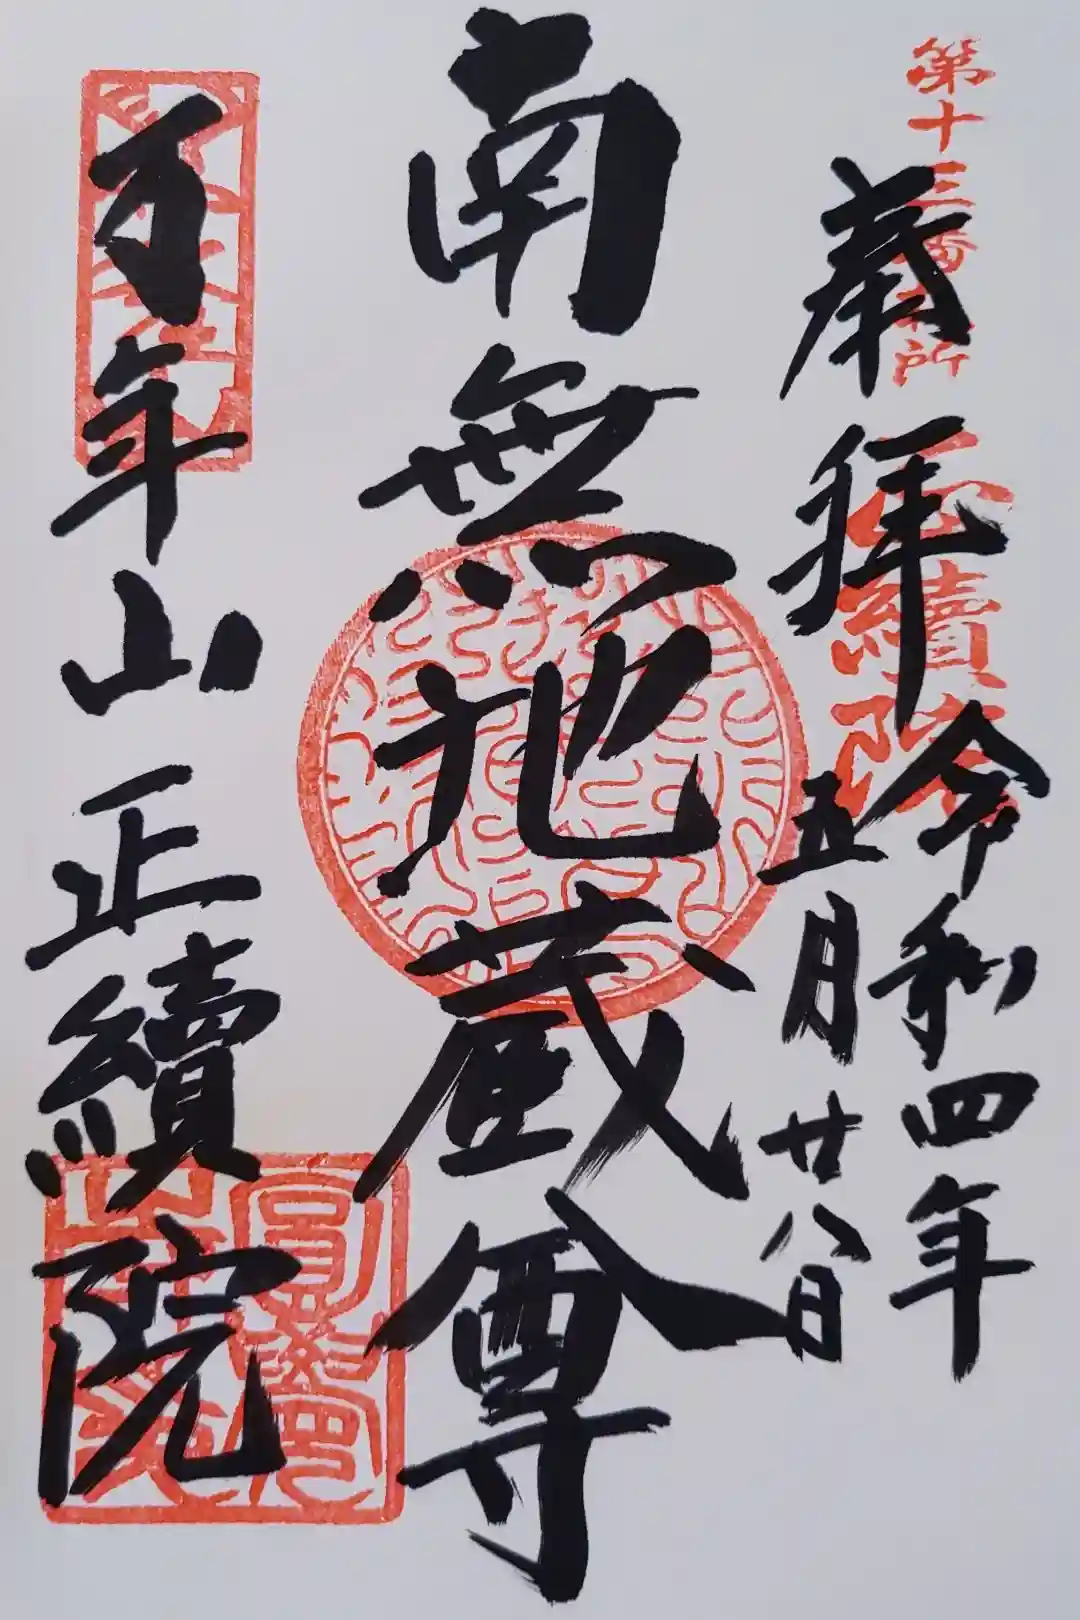 第十三番札所
正續院
奉拝
令和四年
五月廿八日
南無地蔵尊
万年山
正續院